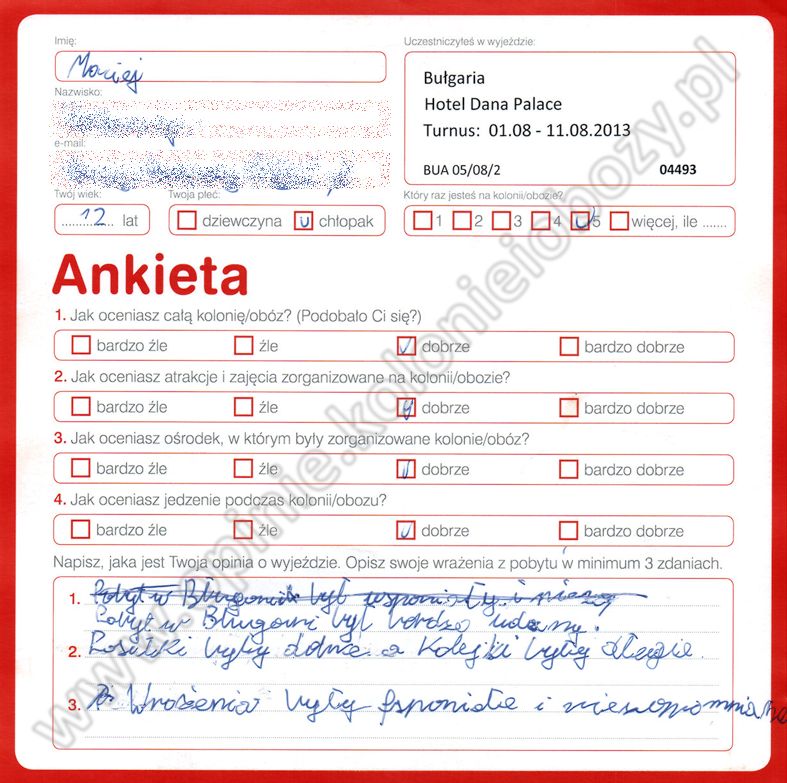 Imię:
Maciej
Uczestniczyłeś w wyjeździe:
Bułgaria
Hotel Dana Palace
Turnus: 01.08 - 11.08.2013
BUA 05/08/2 04493
Nazwisko:
e-mail:
Twój wiek:
12 lat
Twoja płeć:
dziewczyna chłopak
Który raz jesteś na kolonii/obozie?
1 2 3 4 5 więcej, ile .......
Ankieta
1. Jak oceniasz całą kolonię/obóz? (Podobało Ci się?)
bardzo źle źle dobrze bardzo dobrze
2. Jak oceniasz atrakcje i zajęcia zorganizowane na kolonii/obozie?
bardzo źle źle dobrze bardzo dobrze
3. Jak oceniasz ośrodek, w którym były zorganizowane kolonie/obóz?
bardzo źle źle dobrze bardzo dobrze
4. Jak oceniasz jedzenie podczas kolonii/obozu?
bardzo źle źle dobrze bardzo dobrze
Napisz, jaka jest Twoja opinia o wyjeździe. Opisz swoje wrażenia z pobytu w minimum 3 zdaniach.
1. Pobyt w był wspaniały i
Pobyt w był bardzo udany.
2. Posiłki były dobre a kolejki były długie.
3. Wrażenia były i
www.opinie.kolonieiobozy.pl